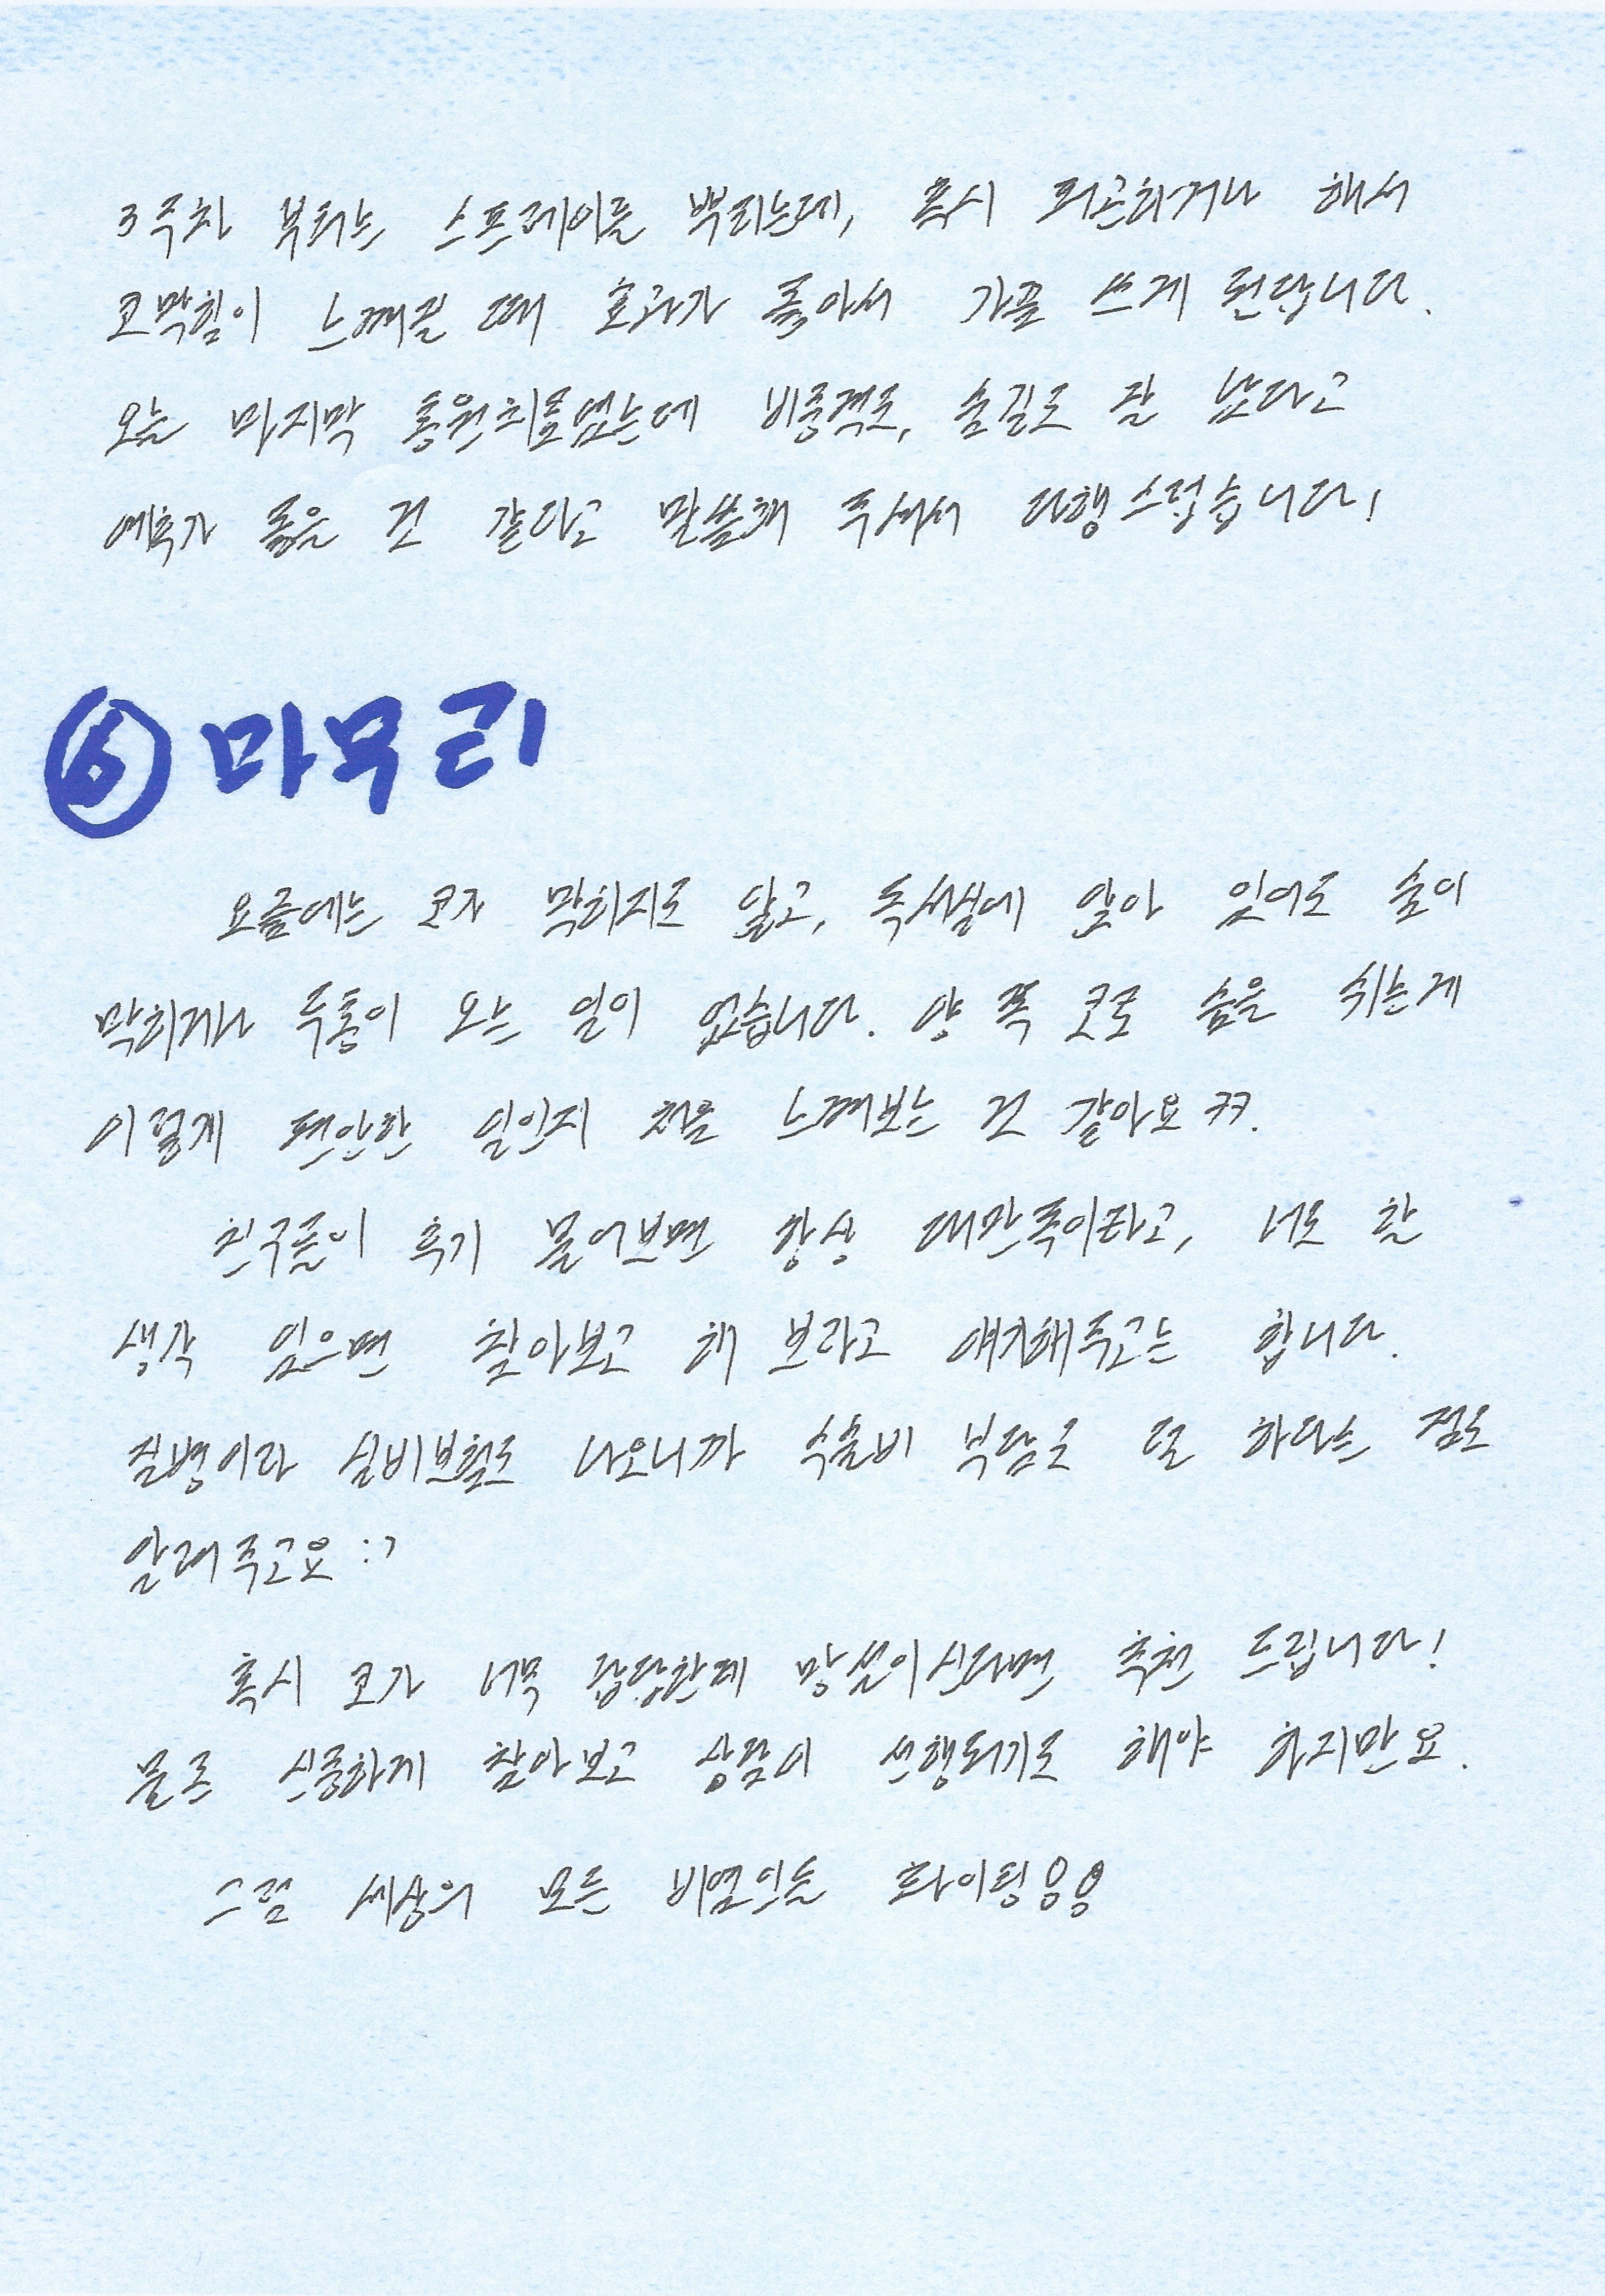 3주차 부터는 스프레이를 뿌리는데, 혹시 피곤하거나 해서
코막힘이 느껴질 때 효과가 좋아서 가끔 쓰게 된답니다.
오늘 마지막 통원치료였는데 비중격도, 숨길도 잘 났다고
예후가 좋은 건 같다고 말씀해 주셔서 다행스럽습니다!
⑥ 마무리
요즘에는 코가 막히지도 않고, 독서실에 앉아 있어도 숨이
막히거나 두통이 오는 일이 없습니다. 양 쪽 코로 숨을 쉬는게
이렇게 편안한 일인지 처음 느껴보는 건 같아요 ㅋㅋ.
친구들이 후기 물어보면 항상 대만족이라고, 너도 할
생각 있으면 찾아보고 해 보라고 얘기해주고는 합니다.
질병이라 실비보험도 나오니까 수술비 부담도 덜 하다는 점도
알려주고요 :>
혹시 코가 너무 답답한데 망설이신다면 추천 드립니다!
물론 신중하게 찾아보고 상담이 선행되기도 해야 하지만요.
그럼 세상의 모든 비염인들 화이팅